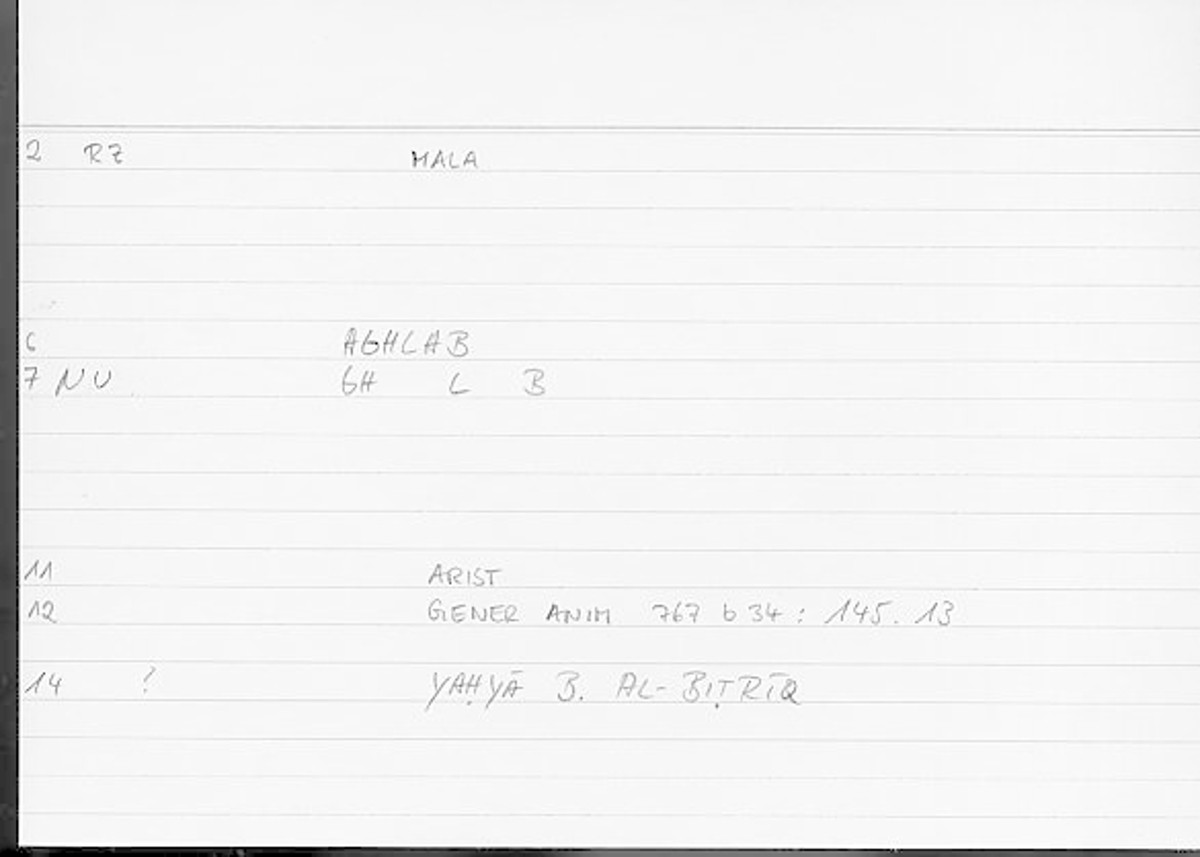 2 RZ MALA
6 AGHLAB
7 NU GH L B
11 ARIST
12 GENER ANIM 767 b 34 : 145. 13
14 ? YAḤYĀ B. AL-BIṬRĪQ